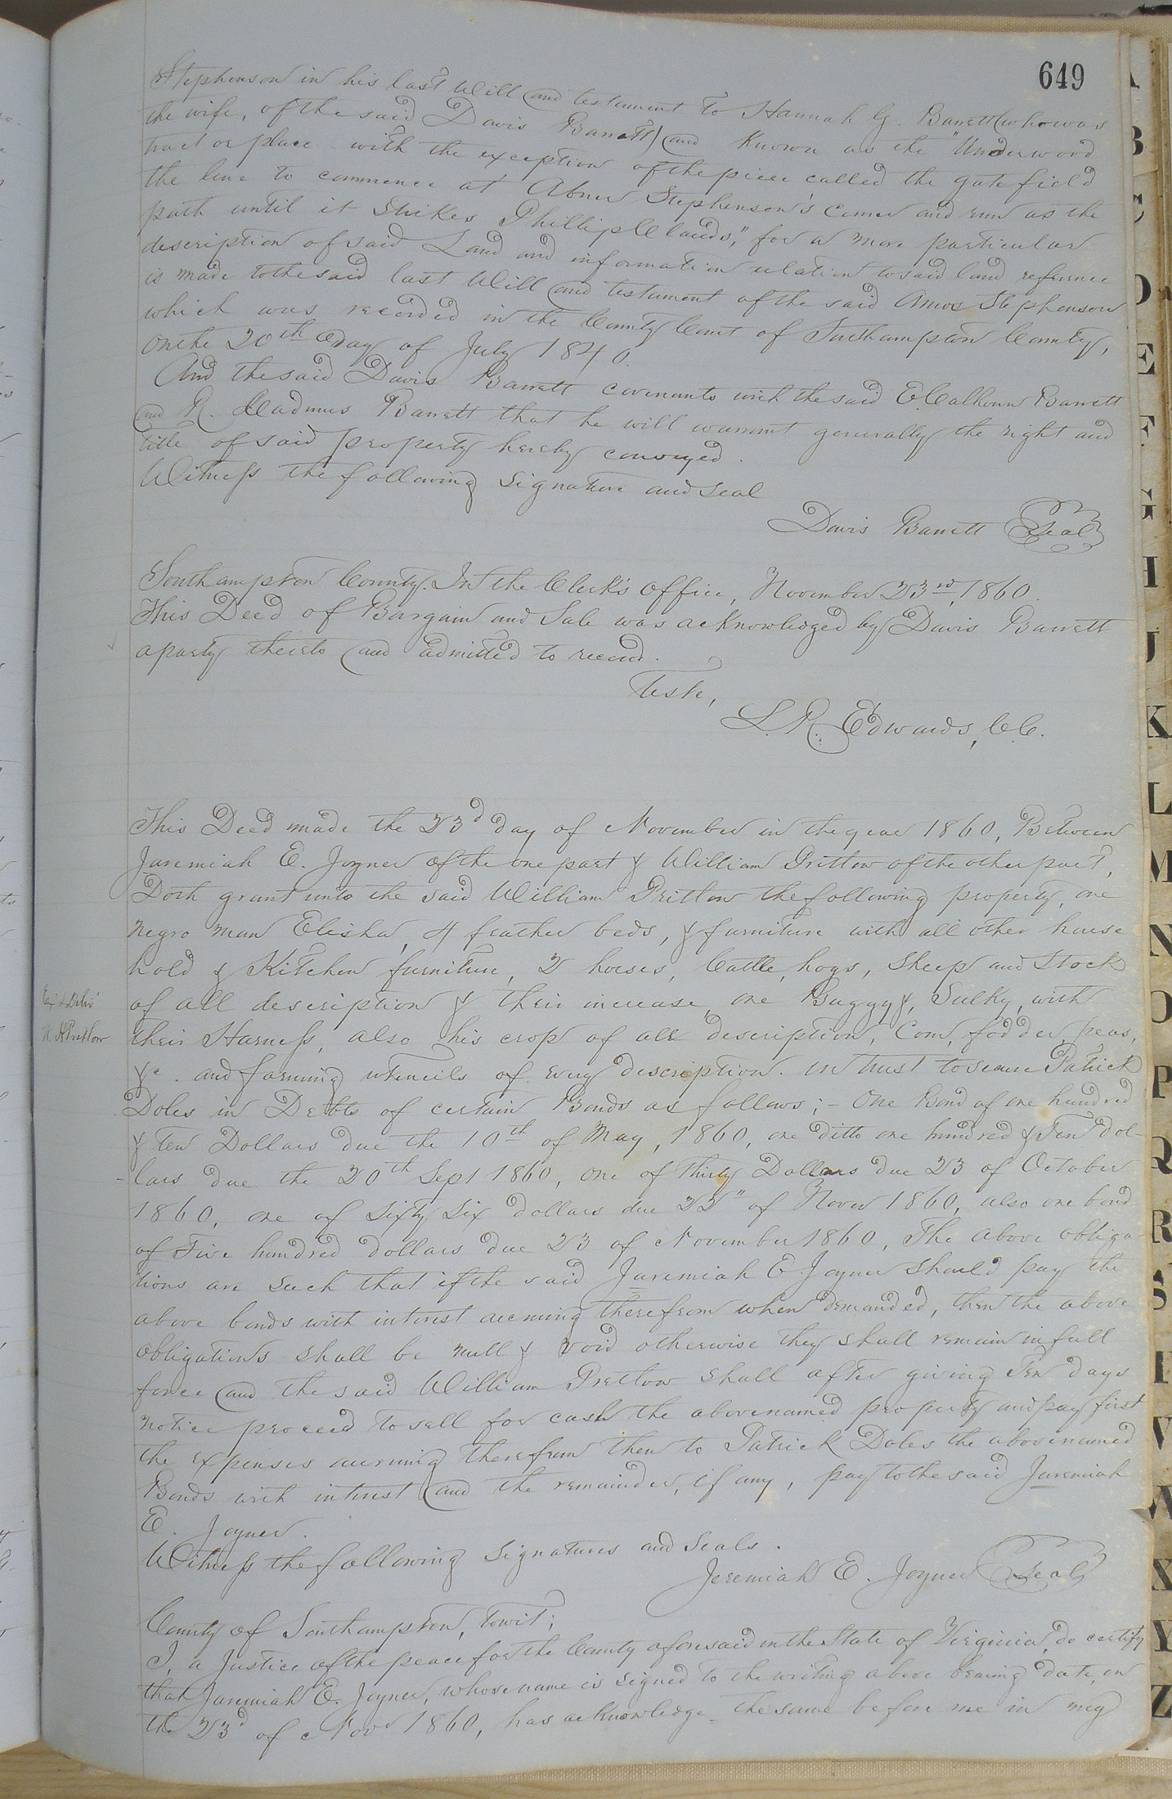 649
Stephenson in his last Will and testament to Hannah G. Barrett (who was
the wife, of the said Davis Barrett) and Known as the "Underwood
tract or place with the exception of the piece called the gate field
the line to commence at Abner Stephenson's corner and run as the
path until it Strikes Phillip Claud's," for a more particular
description of said Land and information relation to said land reference
is made to the said last Will and testament of the said Amos Stephenson
which was recorded in the County Court of Southampton County,
On the 20th day of July 1840.
And the said Davis Barrett covenants with the said E. Calhoun Barrett
and R. Cadmus Barrett that he will warrant generally the right and
title of said property hereby conveyed.
Witness the following signature and seal
Davis Barrett Seal
Southampton County. In the Clerk's Office, November 23rd, 1860.
This Deed of Bargain and Sale was acknowledged by Davis Barrett
a party thereto and admitted to record.
Teste,
L. R. Edwards, C.C.
This Deed made the 23d day of November in the year 1860, Between
Jeremiah E. Joyner of the one part & William Prettow of the other part,
Doth grant unto the said William Pretlow the following property, one
negro man Elisha, 4 feather beds, & furniture with all other house
hold & Kitchen furniture, 2 horses, Cattle, hogs, Sheep and Stock
of all description & their increase, one Buggy &, Sulky, with
their Harness, also his crop of all description, Corn, fodder, peas,
&c. and farming utencils of every description. in trust to secure Patrick
Doles in Debts of certain Bonds as follows; - One Bond of one hundred
& Ten Dollars due the 10th of May, 1860, one ditto one hundred & Ten Dol-
-lars due the 20th Sept 1860, one of Thirty Dollars due 23 of October
1860, one of Sixty Six dollars due 23" of Nover 1860, also one bond
of Five hundred dollars due 23 of November 1860, The above obliga
tions are Such that if the said Jeremiah E. Joyner should pay the
above bonds with interest accruing therefrom when demanded, then the above
obligations shall be null & void otherwise they shall remain in full
force and the said William Pretlow shall after giving Ten days
notice proceed to sell for cash the above named property and pay first
the expenses accruing therefrom then to Patrick Doles the above named
Bonds with interest and the remainder, if any, pay to the said Jeremiah
E. Joyner.
Witness the following signatures and seals.
Jeremiah E. Joyner Seal
County of Southampton, towit;
I, a Justice of the peace for the County aforesaid in the State of Virginia, do certify
that Jeremiah E. Joyner, whose name is signed to the writing above bearing date, on
the 23d of Nov 1860, has acknowledge the same before me in my
B
C
D
E
F
G
H
I
J
K
L
M
N
O
P
Q
R
S
T
V
W
X
Y
Z